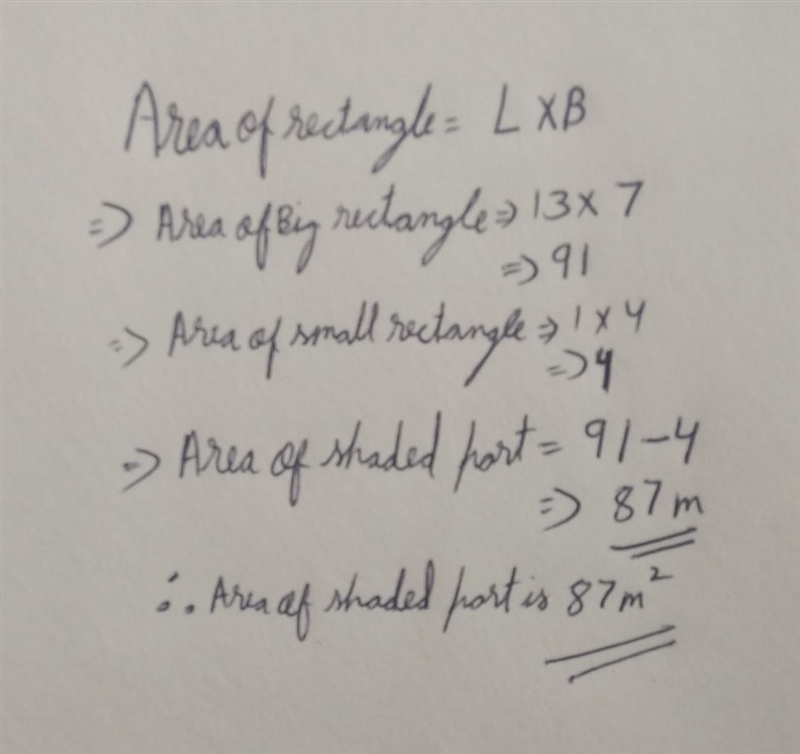 Area of rectangle = L x B
=> Area of Big rectangle => 13 x 7
=> 91
=> Area of small rectangle => 1 x 4
=> 4
=> Area of shaded part = 91 - 4
=> 87 m
∴ Area of shaded part is 87 m²